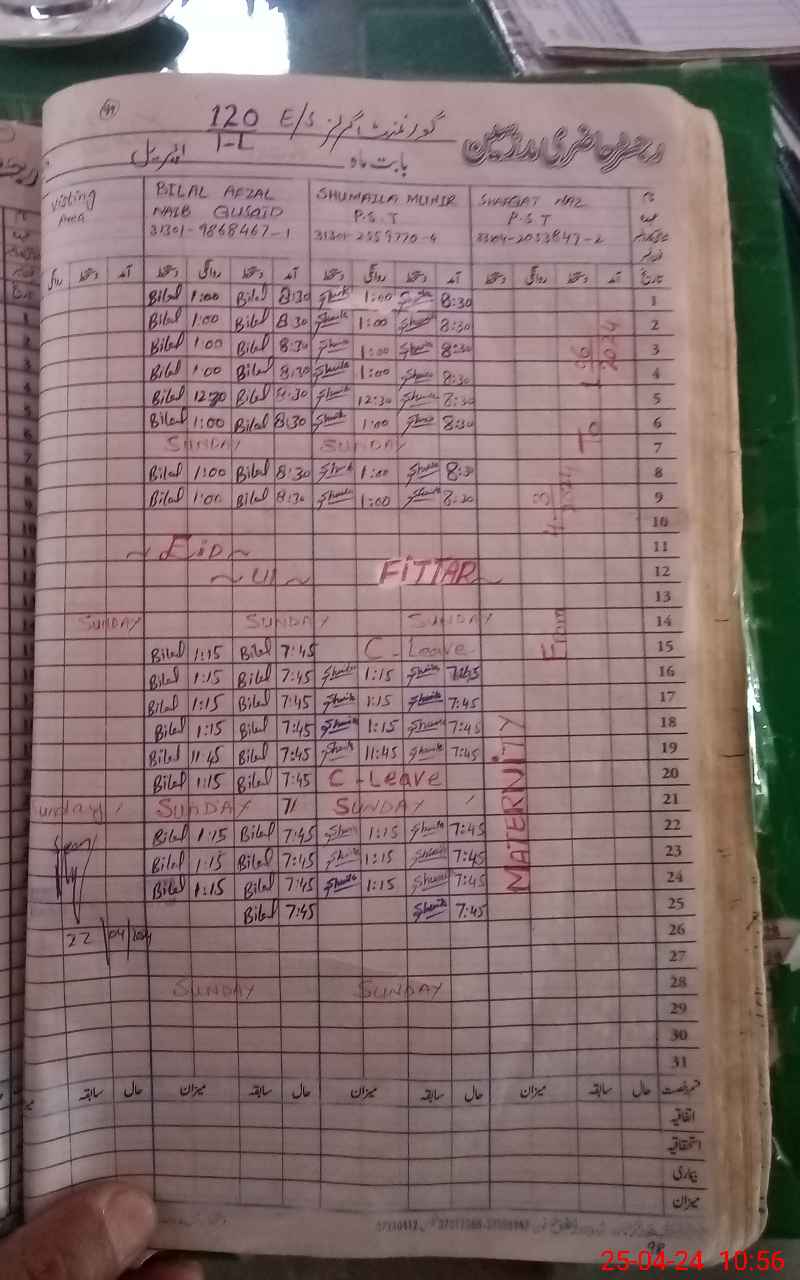 99
120 E/S گورنمنٹ گرلز
1-L
رجسٹر حاضری مدرسین
بابت ماہ اپریل
Visting Area BILAL AFZAL SHUMAILA MUNIR SHAFQAT NAZ نام
NAIB QUSAID P.S.T P.S.T
31301-9868467-1
روانگی دستخط آمد دستخط روانگی دستخط آمد دستخط روانگی دستخط آمد دستخط روانگی دستخط آمد تاریخ
Bilal 1:00 Bilal 8:30 1:00 8:30 1
Bilal 1:00 Bilal 8:30 1:00 8:30 2
Bilal 1:00 Bilal 8:30 1:00 8:30 3
Bilal 1:00 Bilal 8:30 1:00 8:30 4
Bilal 12:30 Bilal 8:30 12:30 8:30 5
Bilal 1:00 Bilal 8:30 1:00 8:30 6
SANDAY SUNDAY 7
Bilal 1:00 Bilal 8:30 1:00 8:30 8
Bilal 1:00 Bilal 8:30 1:00 8:30 9
10
~ EiD ~ 11
~ Ul ~ FiTTAR ~ 12
13
SUNDAY SUNDAY SUNDAY 14
Bilal 1:15 Bilal 7:45 C - Leave 15
Bilal 1:15 Bilal 7:45 1:15 7:45 16
Bilal 1:15 Bilal 7:45 1:15 7:45 17
Bilal 1:15 Bilal 7:45 1:15 7:45 18
Bilal 11:45 Bilal 7:45 11:45 7:45 19
Bilal 1:15 Bilal 7:45 C - Leave 20
Sunday SUNDAY SUNDAY 21
Bilal 1:15 Bilal 7:45 1:15 7:45 22
Bilal 1:15 Bilal 7:45 1:15 7:45 23
Bilal 1:15 Bilal 7:45 1:15 7:45 24
Bilal 7:45 7:45 25
22/04/ 26
27
SUNDAY SUNDAY 28
29
30
31
MATERNiTY From To
سابقہ حال میزان سابقہ حال میزان سابقہ حال میزان سابقہ حال قسم رخصت
اتفاقیہ
استحقاقیہ
بیماری
میزان
25-04-24 10:56